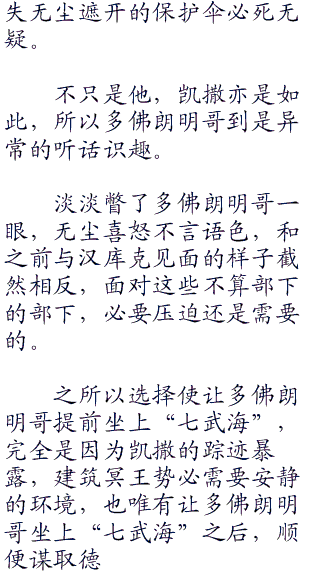 失无尘遮开的保护伞必死无
疑。
不只是他，凯撒亦是如
此，所以多佛朗明哥到是异
常的听话识趣。
淡淡瞥了多佛朗明哥一
眼，无尘喜怒不言语色，和
之前与汉库克见面的样子截
然相反，面对这些不算部下
的部下，必要压迫还是需要
的。
之所以选择使让多佛朗
明哥提前坐上“七武海”，
完全是因为凯撒的踪迹暴
露，建筑冥王势必需要安静
的环境，也唯有让多佛朗明
哥坐上“七武海”之后，顺
便谋取德